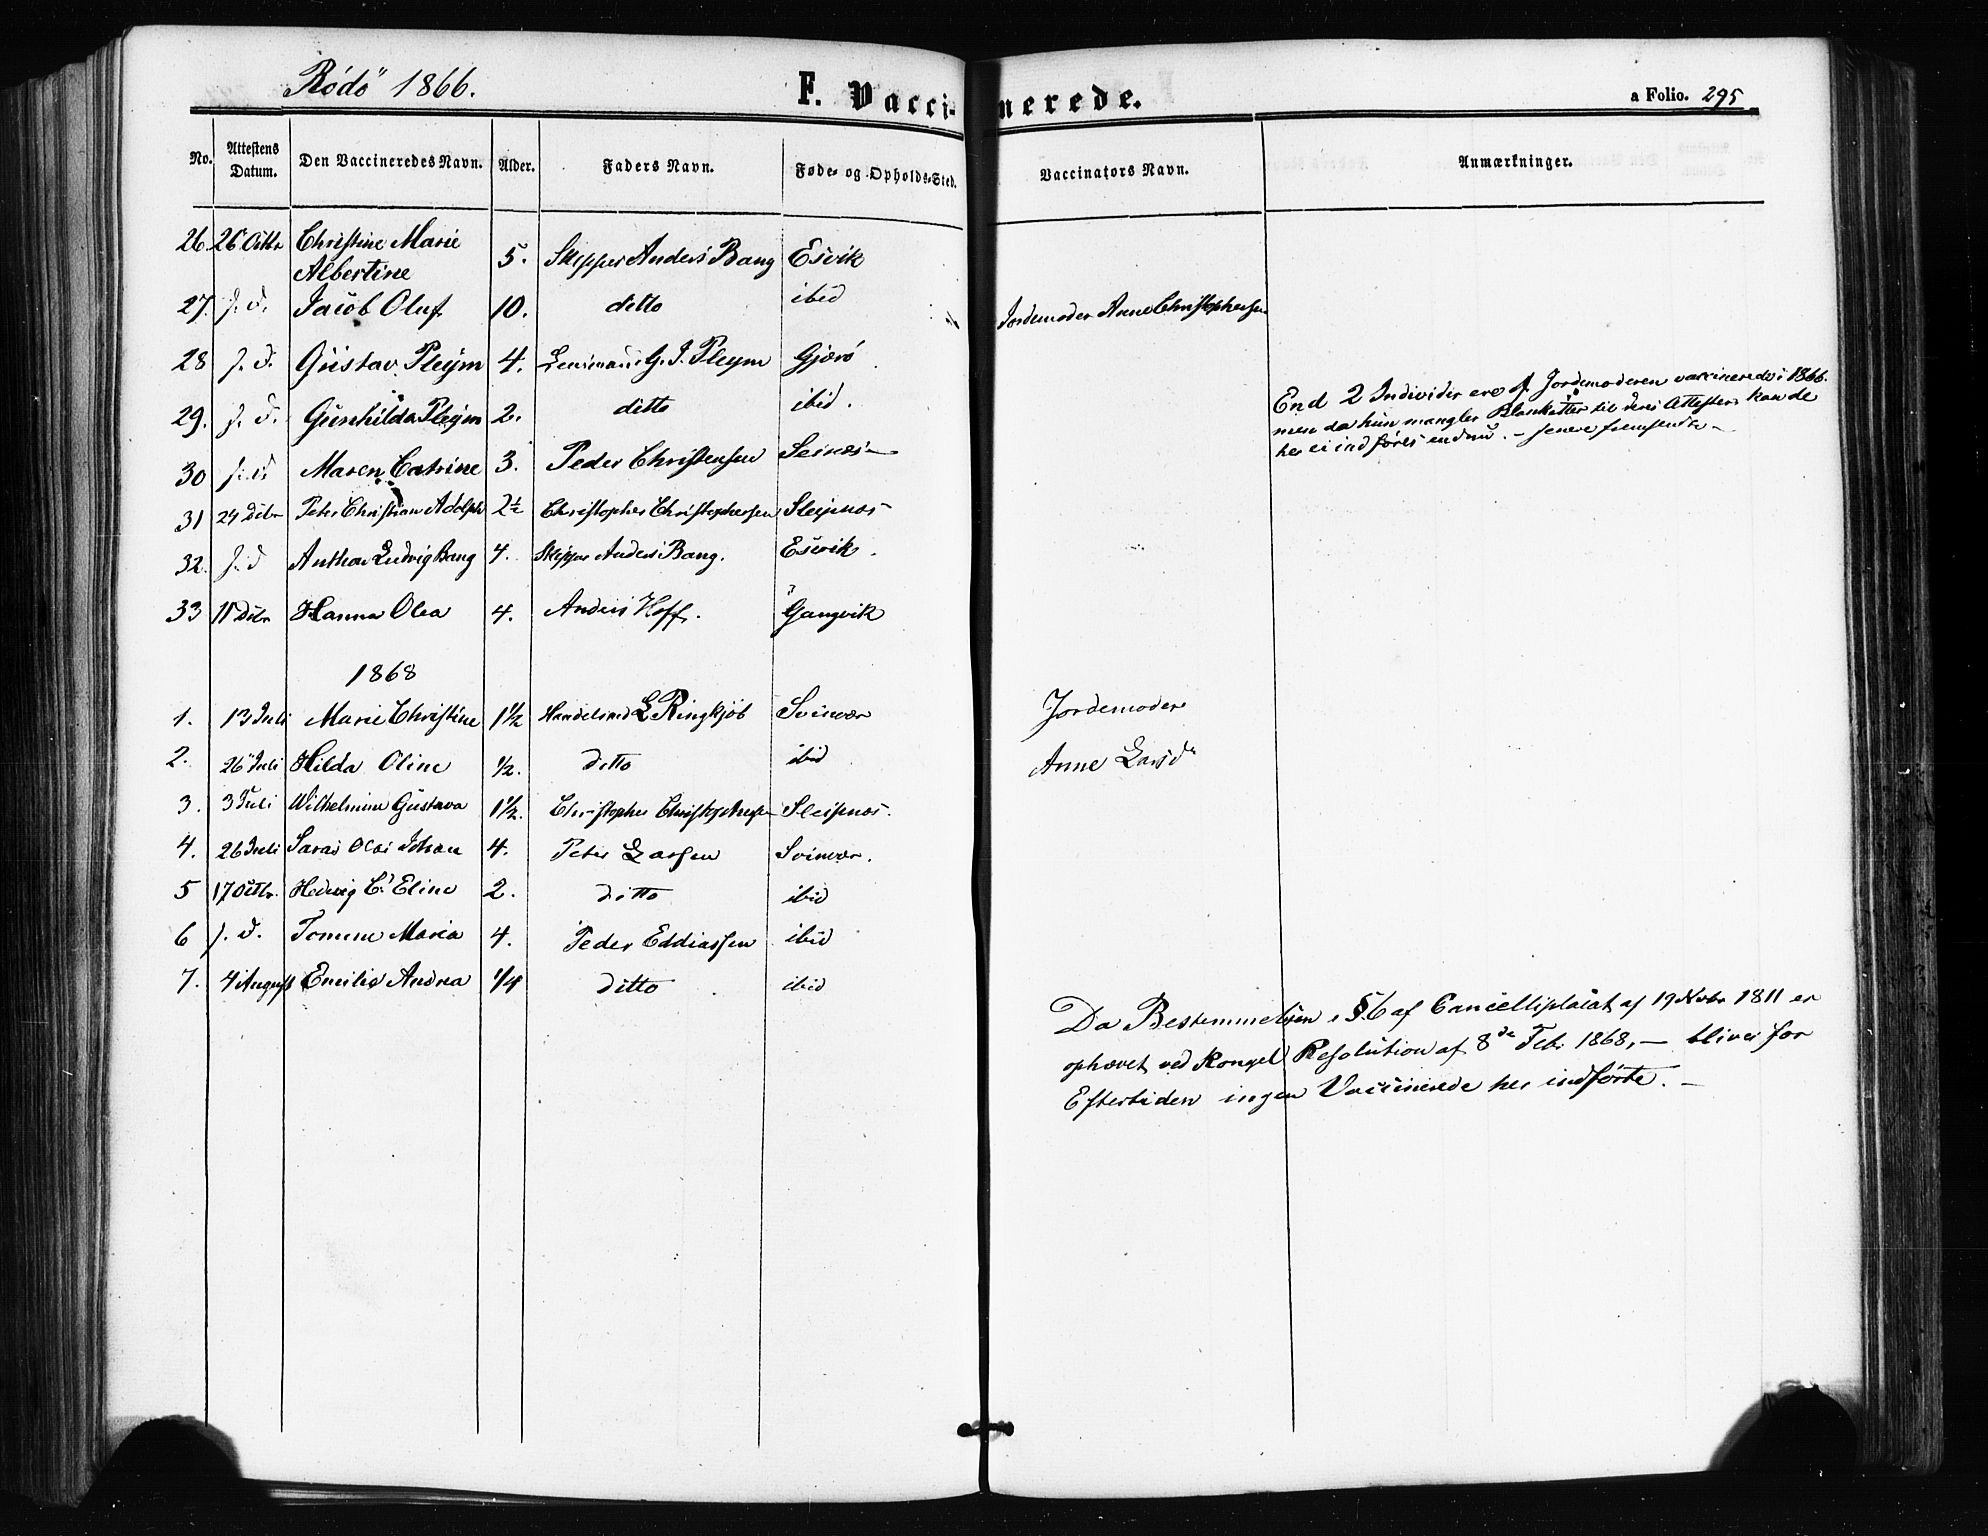 Rödö 1866.
F. Vaccinerede.
a Folio. 295
No. Attestens Datum. Den Vaccineredes Navn. Alder. Faders Navn. Føde- og Opholds-Sted. Vaccinators Navn. Anmærkninger.
26. 26 Octbr Christine Marie
Albertine 5. Skipper Anders Bang Esvik
27. s. d. Jacob Oluf 10. ditto ibid Jordemoder Anne Christophersen
28 s. d. Gustav Pleym 4. Lensmand G. J. Pleym Gjærö
29. s. d. Gunhilda Pleym 2. ditto ibid.
End 2 Individer ere af Jordemoderen vaccinerede i 1866.
men da hun mangler Blanketter til deres Attester kan de
her ei indføres endnu. – senere fremsendte –
30 s. d. Maren Catrine 3. Peder Christensen Selnæs
31 24 Dcbr Peter Christian Adolph 2½ Christopher Christophersen Sleipnæs
32. s. d Anthon Ludvig Bang 4. Skipper Anders Bang. Esvik.
33 11 Dcbr Hanna Olea 4. Anders Hoff. Gangvik
1868
1. 13 Juli Marie Christine 1½ Handelsmd L Ringkjöb Svinvær Jordemoder
2. 26 Juli Hilda Oline ½. ditto ibid Anne Larsd
3. 3 Juli Wilhelmine Gustava 1½. Christopher Christophersen Sleipnæs.
4. 26 Juli Saras Olai Johan 4. Peter Larsen Svinvær.
5 17 Octbr. Hedevig C. Eline 2. ditto ibid
6 s. d. Tomine Maria 4. Peder Eddiassen ibid
7. 4 August Emilie Andrea ¼ ditto ibid
Da Bestemmelsen i § 6 af Cancelliplacat af 19 Novbr 1811 er
ophævet ved Kongel Resolution af 8de Feb. 1868, — bliver for
Eftertiden ingen Vaccinerede her indførte. –